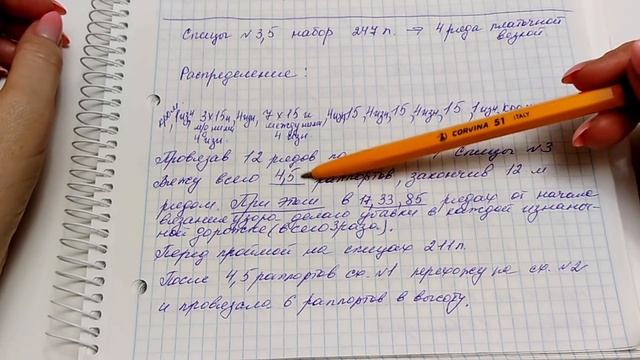 Спицы №3,5 набор 247 п. ⇒ 4 ряда платочной
вязкой
Распределение:
1 изн, 3×15 и, 4 изн, 7×15 и, 4 изн, 15, 4 изн, 15, 4 изн, 15, 1 изн, кром
м/у ними между ними
4 изн. 4 изн.
Провязав 12 рядов по спицы №3
Вяжу всего 4,5 раппортов, закончив 12 м
рядом. При этом в 17, 33, 85 рядах от начала
вязания узора делаю убавки в каждой изнаноч-
ной дорожке (всего 3 раза).
Перед проймой на спицах 211 п.
После 4,5 раппортов сх. №1 перехожу на сх. №2
и провязала 6 раппортов в высоту.
CORVINA 51 ITALY